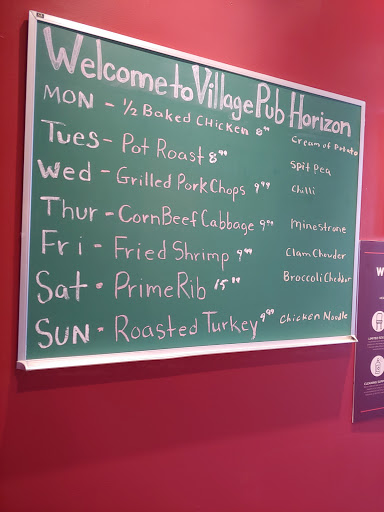 Welcome to Village Pub Horizon
MON - 1/2 Baked Chicken 8⁹⁹ Cream of Potato
Tues - Pot Roast 8⁹⁹ Spit Pea
Wed - Grilled Pork Chops 9⁹⁹ Chilli
Thur - Corn Beef Cabbage 9⁹⁹ Minestrone
Fri - Fried Shrimp 9⁹⁹ Clam Chowder
Sat - Prime Rib 15 Broccoli Cheddar
SUN - Roasted Turkey 9⁹⁹ Chicken Noodle
W